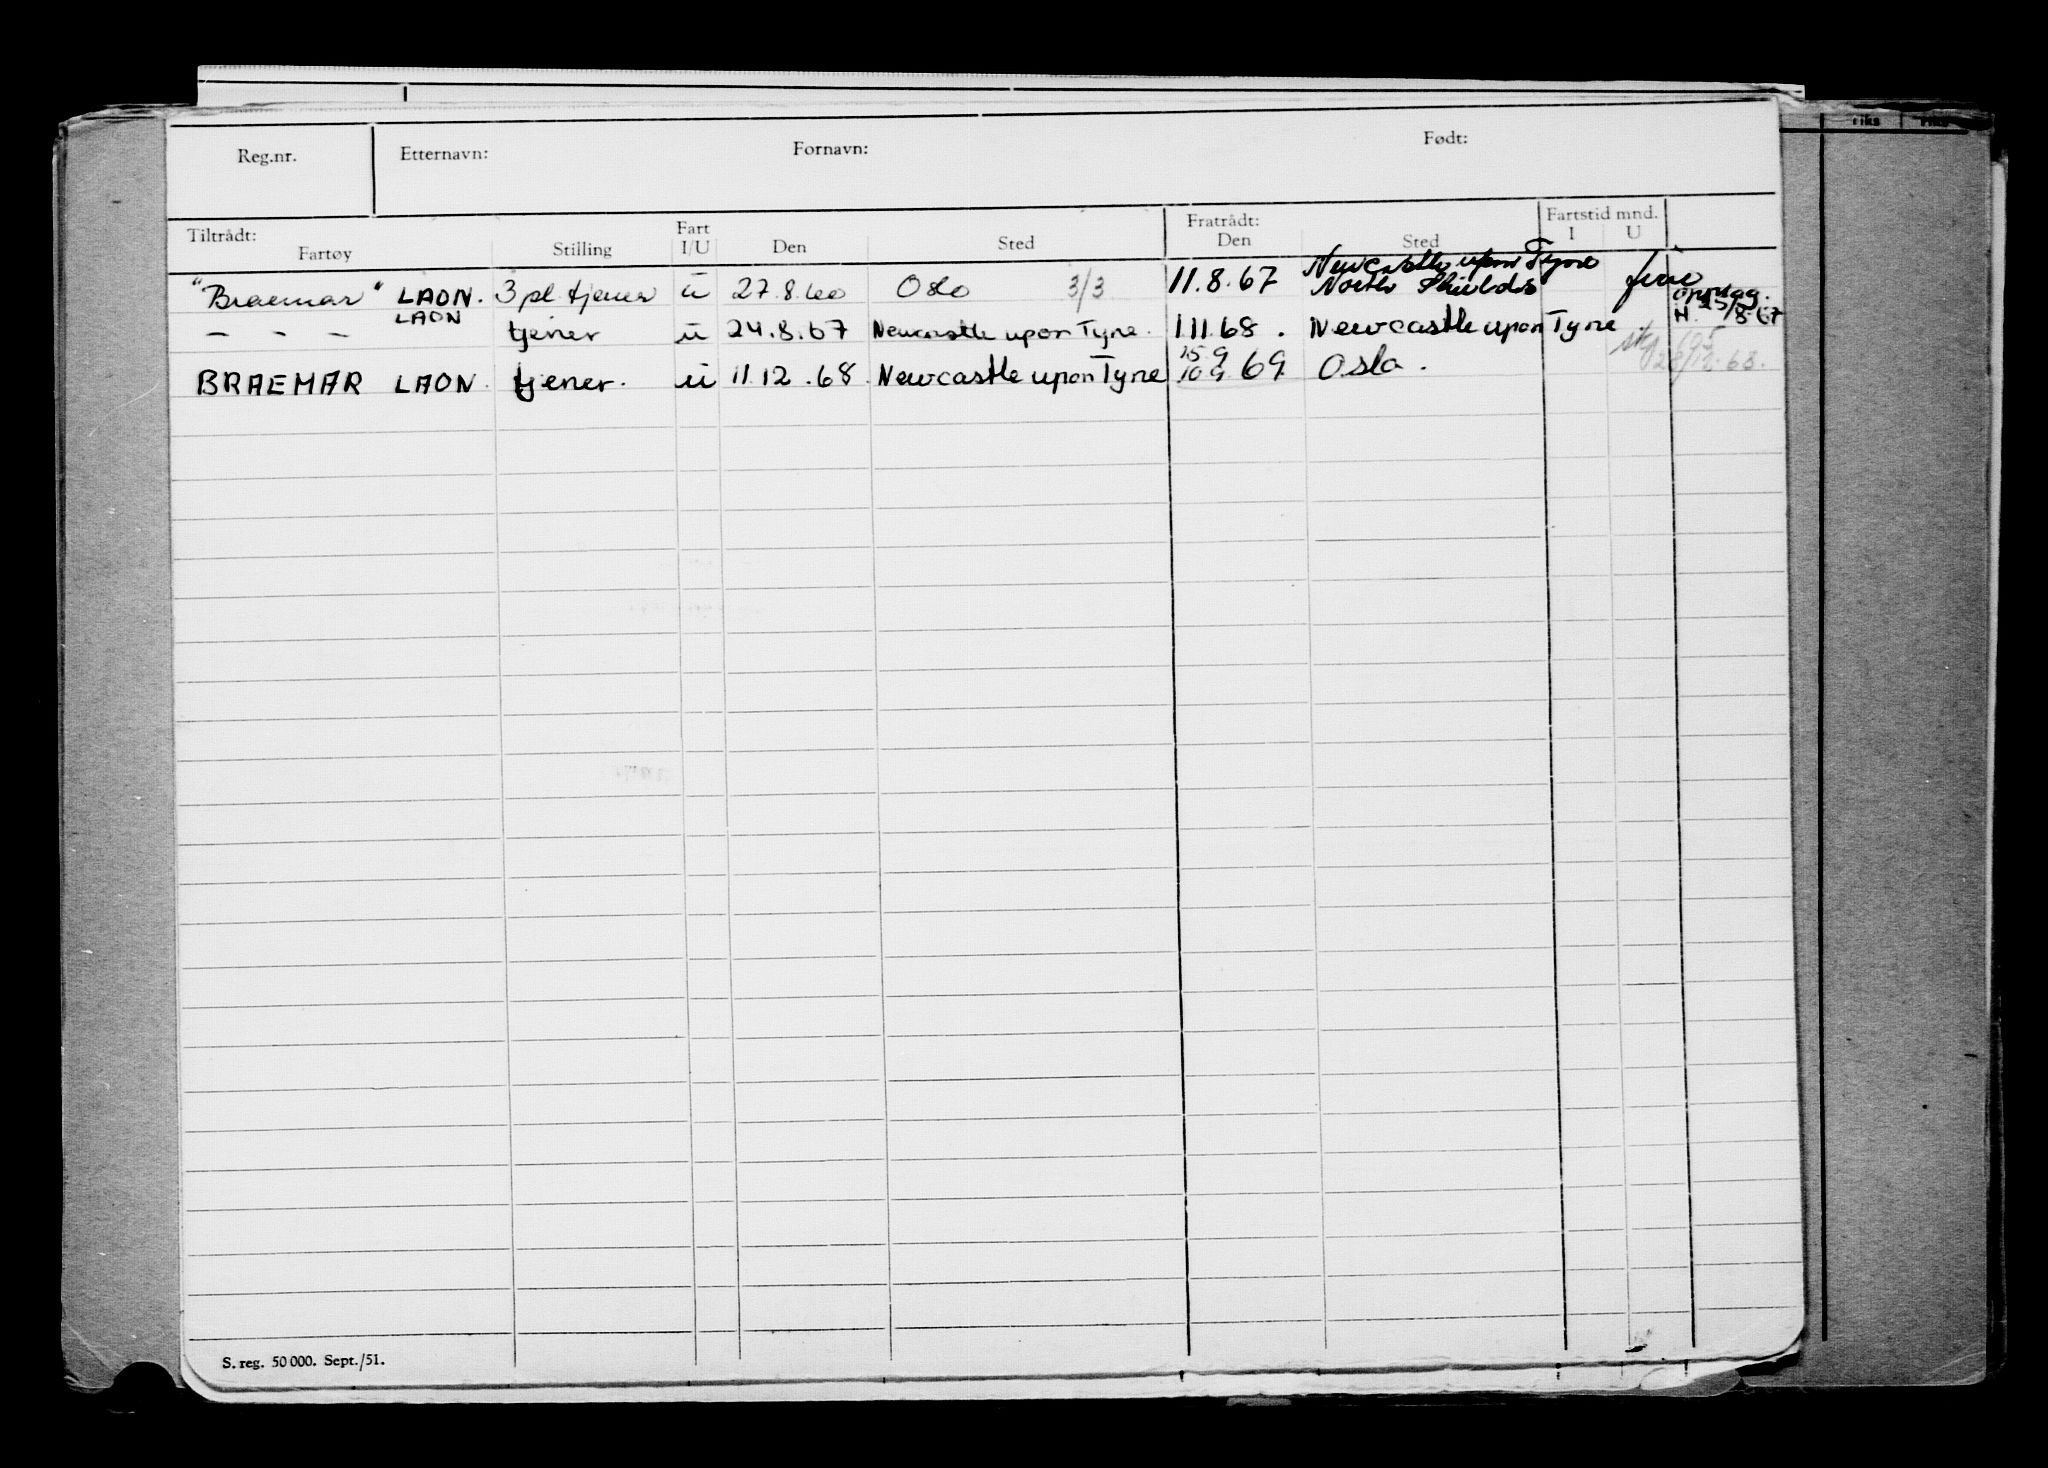 Reg.nr. Etternavn: Fornavn: Født:
Tiltrådt: Fratrådt: Fartstid mnd.
Fartøy Stilling Fart I/U Den Sted Den Sted I U
"Braemar" LAON. 3 pl tjener u 27.8.60 Oslo 3/3 11.8.67 Newcastle upon Tyne North Shields ferie
LAON
— — — tjener u 24.8.67 Newcastle upon Tyne. 1.11.68. Newcastle upon Tyne
BRAEMAR LAON. tjener. u 11.12.68. Newcastle upon Tyne 69 Oslo.
S. reg. 50 000. Sept./51.